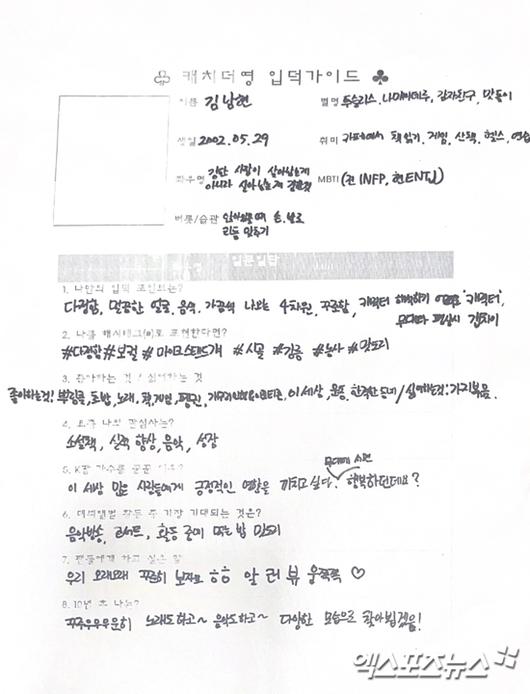 ♧ 캐치더영 입덕가이드 ♣
이름 김남현
별명 투슬리스, 나미야테루, 감자친구, 맏동이
생일 2002.05.29
취미 카페에서 책읽기, 게임, 산책, 헬스, 연습
좌우명 강한 사람이 살아남는게 아니라 살아남는게 강한것
MBTI (전 INFP, 현 ENTJ)
버릇/습관 안절부절 때 손, 발로 리듬 맞추기
일문일답
1. 나만의 입덕 포인트는?
다정함, 멀끔한 얼굴, 음색, 가끔씩 나오는 4차원, 꾸준함, 캐릭터
무대와 평상시 갭차이
2. 나를 해시태그(#)로 표현한다면?
#다정함 #보컬 #마이크스탠드개 #시골 #감동 #농사 #
3. 좋아하는 것 / 싫어하는 것
좋아하는것! 뿌링클, 초밥, 노래, 책, 게임, 팬분, 이 세상, 운동, 한적한 동네 / 싫어하는것: 가지볶음.
4. 요즘 나의 관심사는?
소설책, 실력 향상, 음악, 성장
5. K팝 가수를 꿈꾼 이유?
이 세상 많은 사람들에게 긍정적인 영향을 끼치고 싶다. 무대에 서면 행복하던데요?
6. 데뷔앨범 활동 중 가장 기대되는 것은?
음악방송, 콘서트, 활동 준비 또는 밥 먹기
7. 팬들에게 하고 싶은 말
우리 오래오래 꾸준히 보자고 ㅎㅎ 알 러 뷰 울룩룩 ♡
8. 10년 후 나는?
꾸준우우우운히 노래도 하고~ 음악도 하고~ 다양한 모습으로 찾아뵙겠음!
엑스포츠뉴스